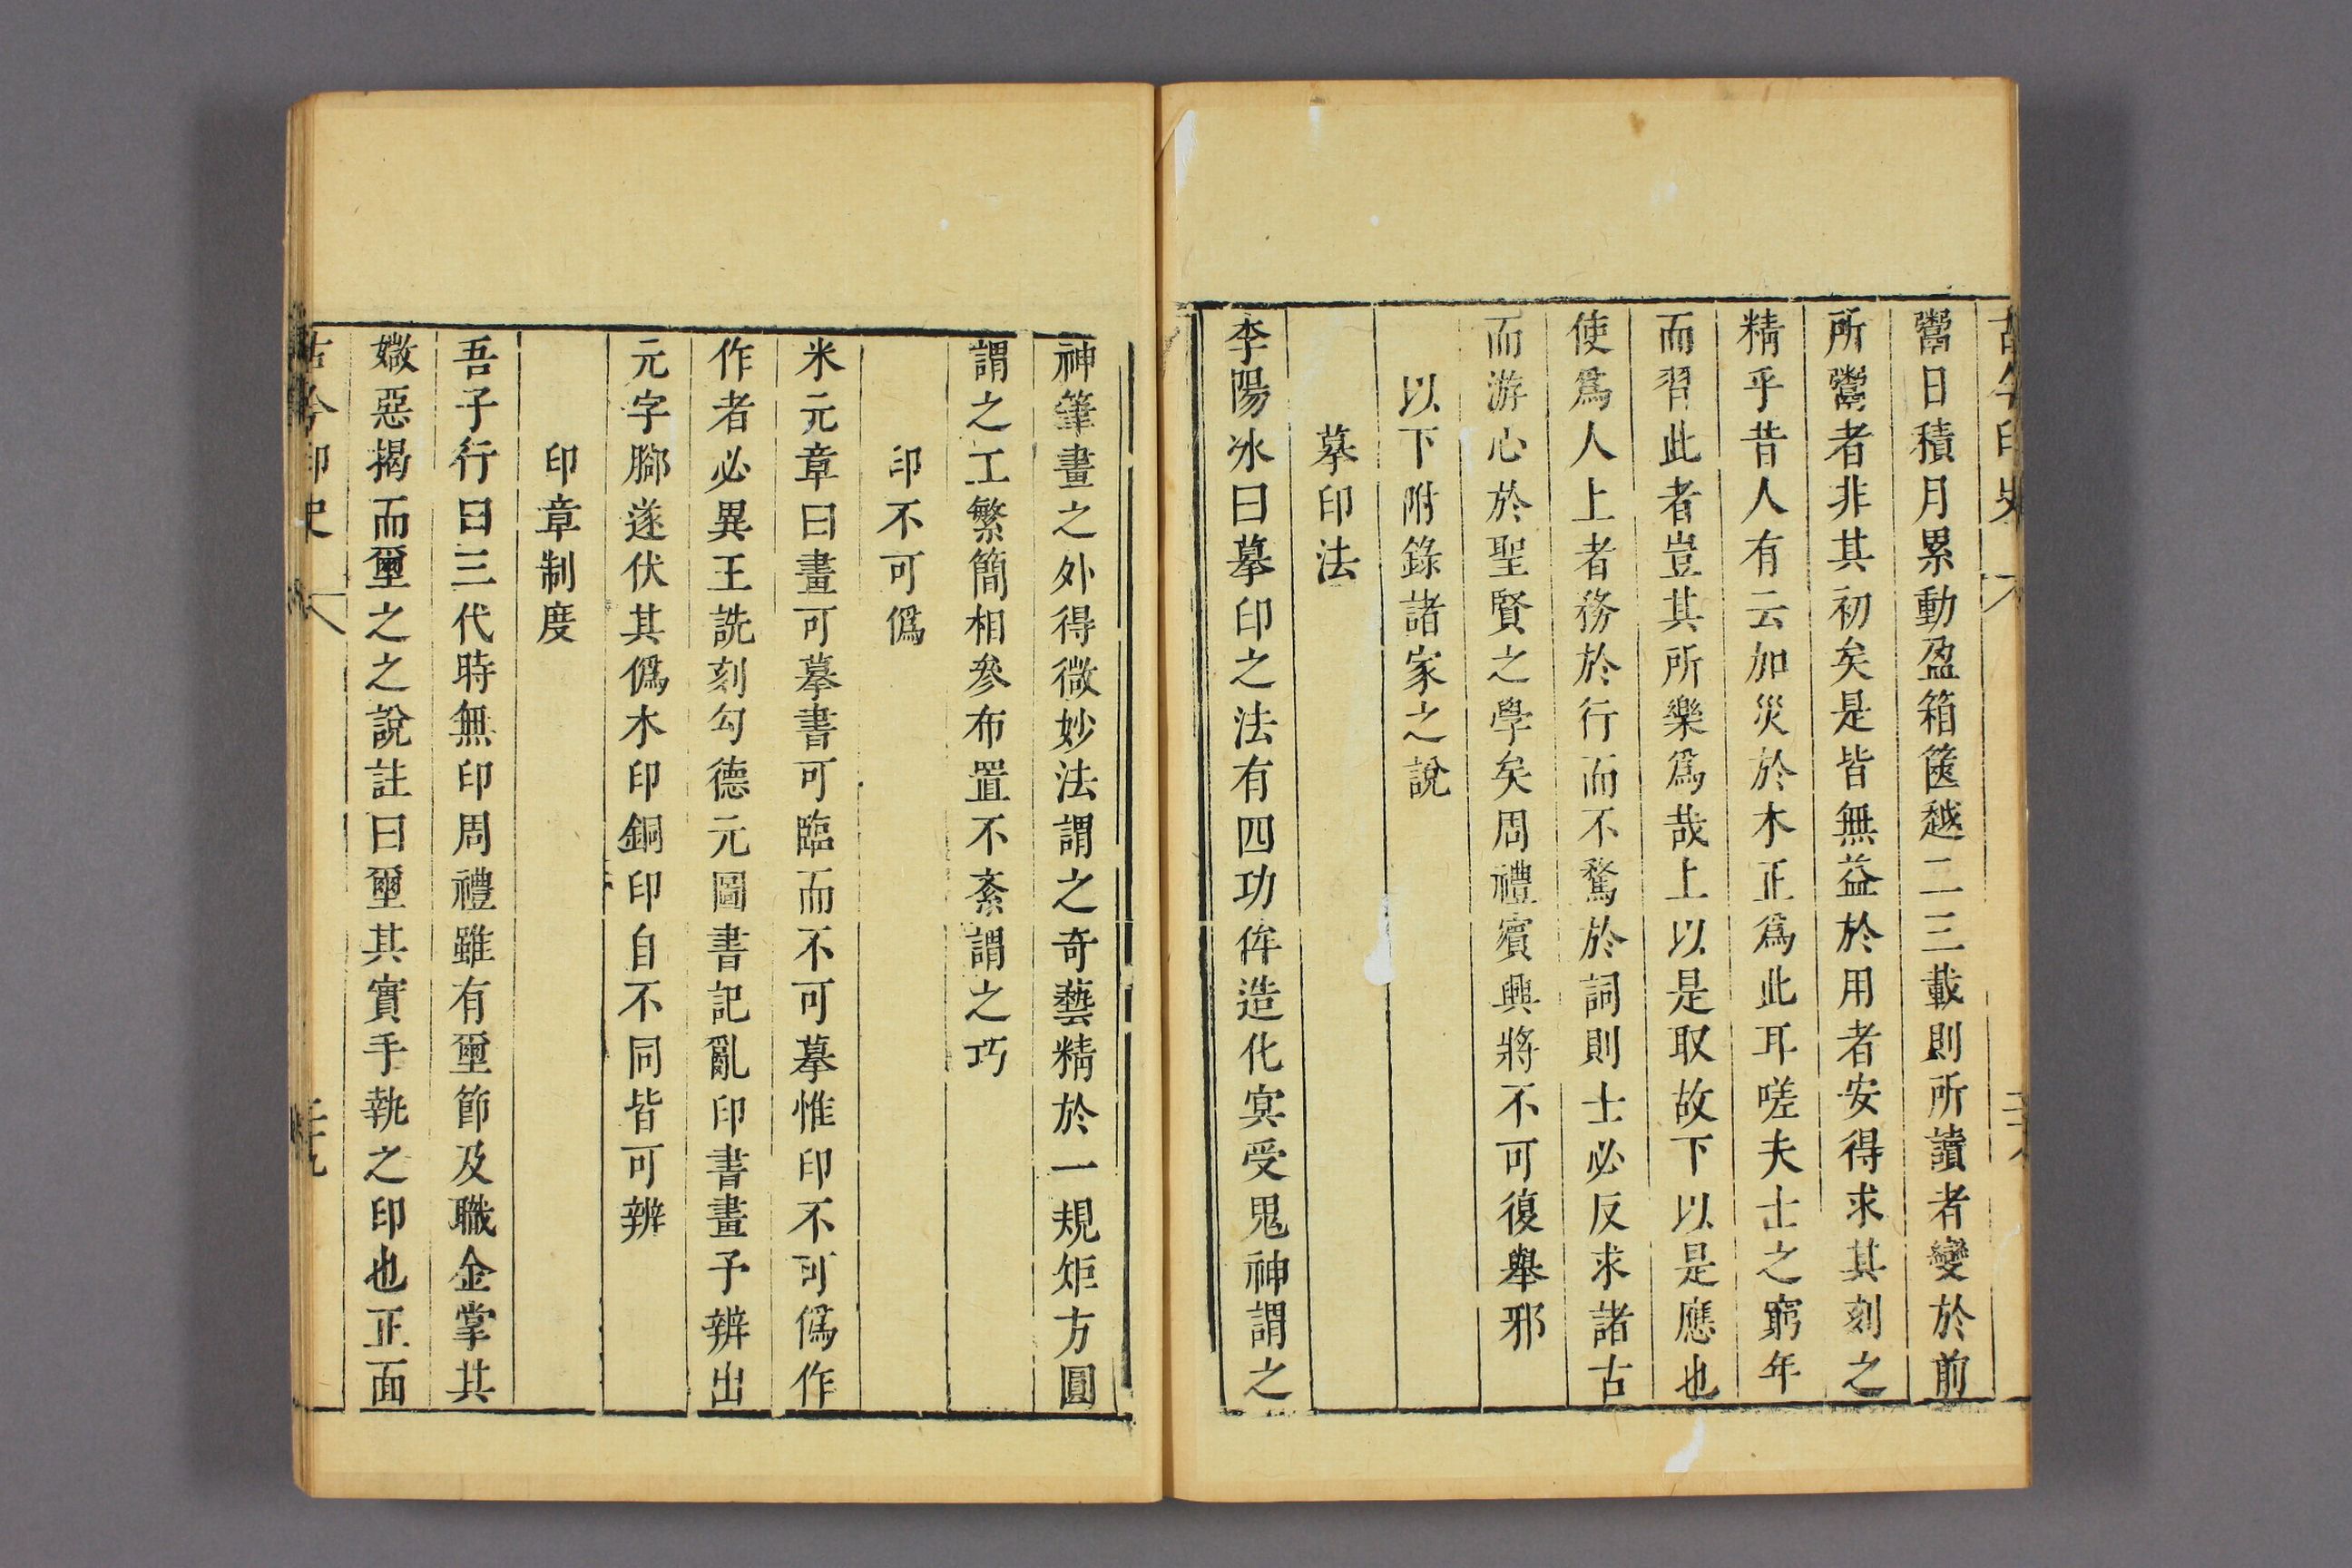 古今印史
鬻日積月累動盈箱篋越二三載則所讀者變於前
所鬻者非其初矣是皆無益於用者安得求其刻之
精乎昔人有云加災於木正爲此耳嗟夫士之窮年
而習此者豈其所樂爲哉上以是取故下以是應也
使爲人上者務於行而不騖於詞則士必反求諸古
而游心於聖賢之學矣周禮賓興將不可復舉邪
以下附錄諸家之說
摹印法
李陽冰曰摹印之法有四功侔造化冥受鬼神謂之
神筆畫之外得微妙法謂之奇藝精於一規矩方圓
謂之工繁簡相參布置不紊謂之巧
印不可僞
米元章曰畫可摹書可臨而不可摹惟印不可僞作
作者必異王詵刻勾德元圖書記亂印書畫予辨出
元字脚遂伏其僞木印銅印自不同皆可辨
印章制度
吾子行曰三代時無印周禮雖有璽節及職金掌其
媺惡揭而璽之之說註曰璽其實手執之印也正面
古今印史